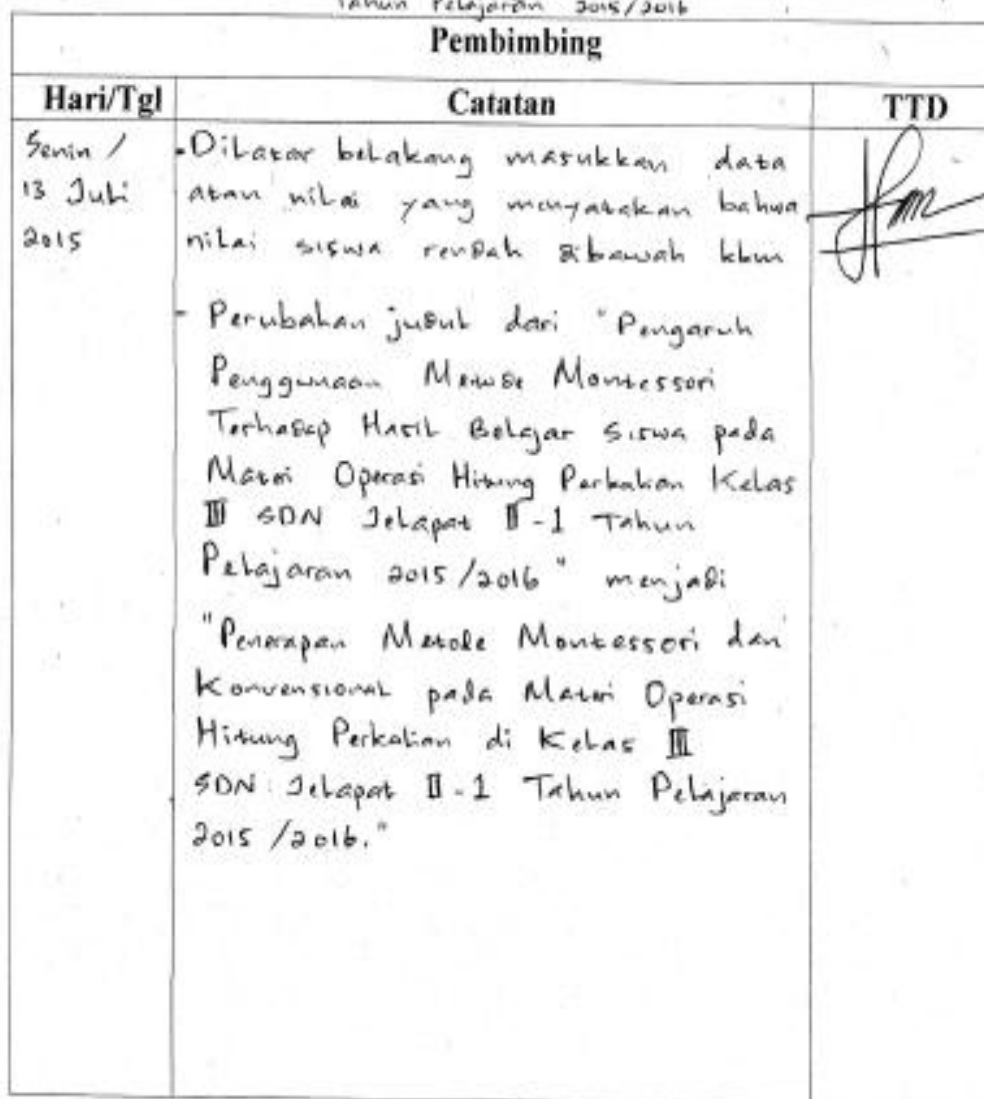 Tahun Pelajaran 2015/2016
Pembimbing
Hari/Tgl Catatan TTD
Senin /
13 Juli
2015
- Dilatar belakang masukkan data
atau nilai yang menyatakan bahwa
nilai siswa rendah dibawah kbm
- Perubahan judul dari "Pengaruh
Penggunaan Metode Montessori
Terhadap Hasil Belajar Siswa pada
Materi Operasi Hitung Perkalian Kelas
III SDN Jelapat II-1 Tahun
Pelajaran 2015/2016" menjadi
"Penerapan Metode Montessori dan
Konvensional pada Materi Operasi
Hitung Perkalian di Kelas III
SDN Jelapat II-1 Tahun Pelajaran
2015/2016."